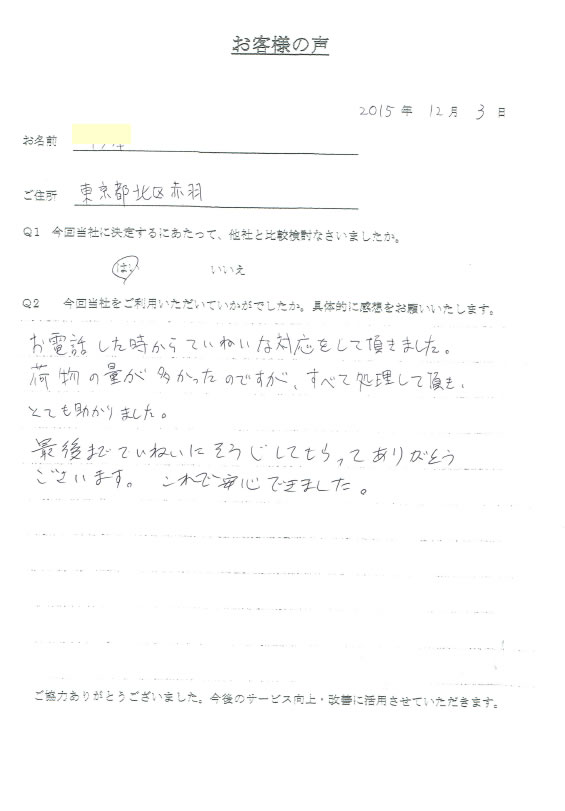 お客様の声
2015年 12月 3日
お名前
ご住所 東京都北区赤羽
Q1 今回当社に決定するにあたって、他社と比較検討なさいましたか。
はい いいえ
Q2 今回当社をご利用いただいていかがでしたか。具体的に感想をお願いいたします。
お電話した時からていねいな対応をして頂きました。
荷物の量が多かったのですが、すべて処理して頂き、
とても助かりました。
最後までていねいにそうじしてもらってありがとう
ございます。 これで安心できました。
ご協力ありがとうございました。今後のサービス向上・改善に活用させていただきます。